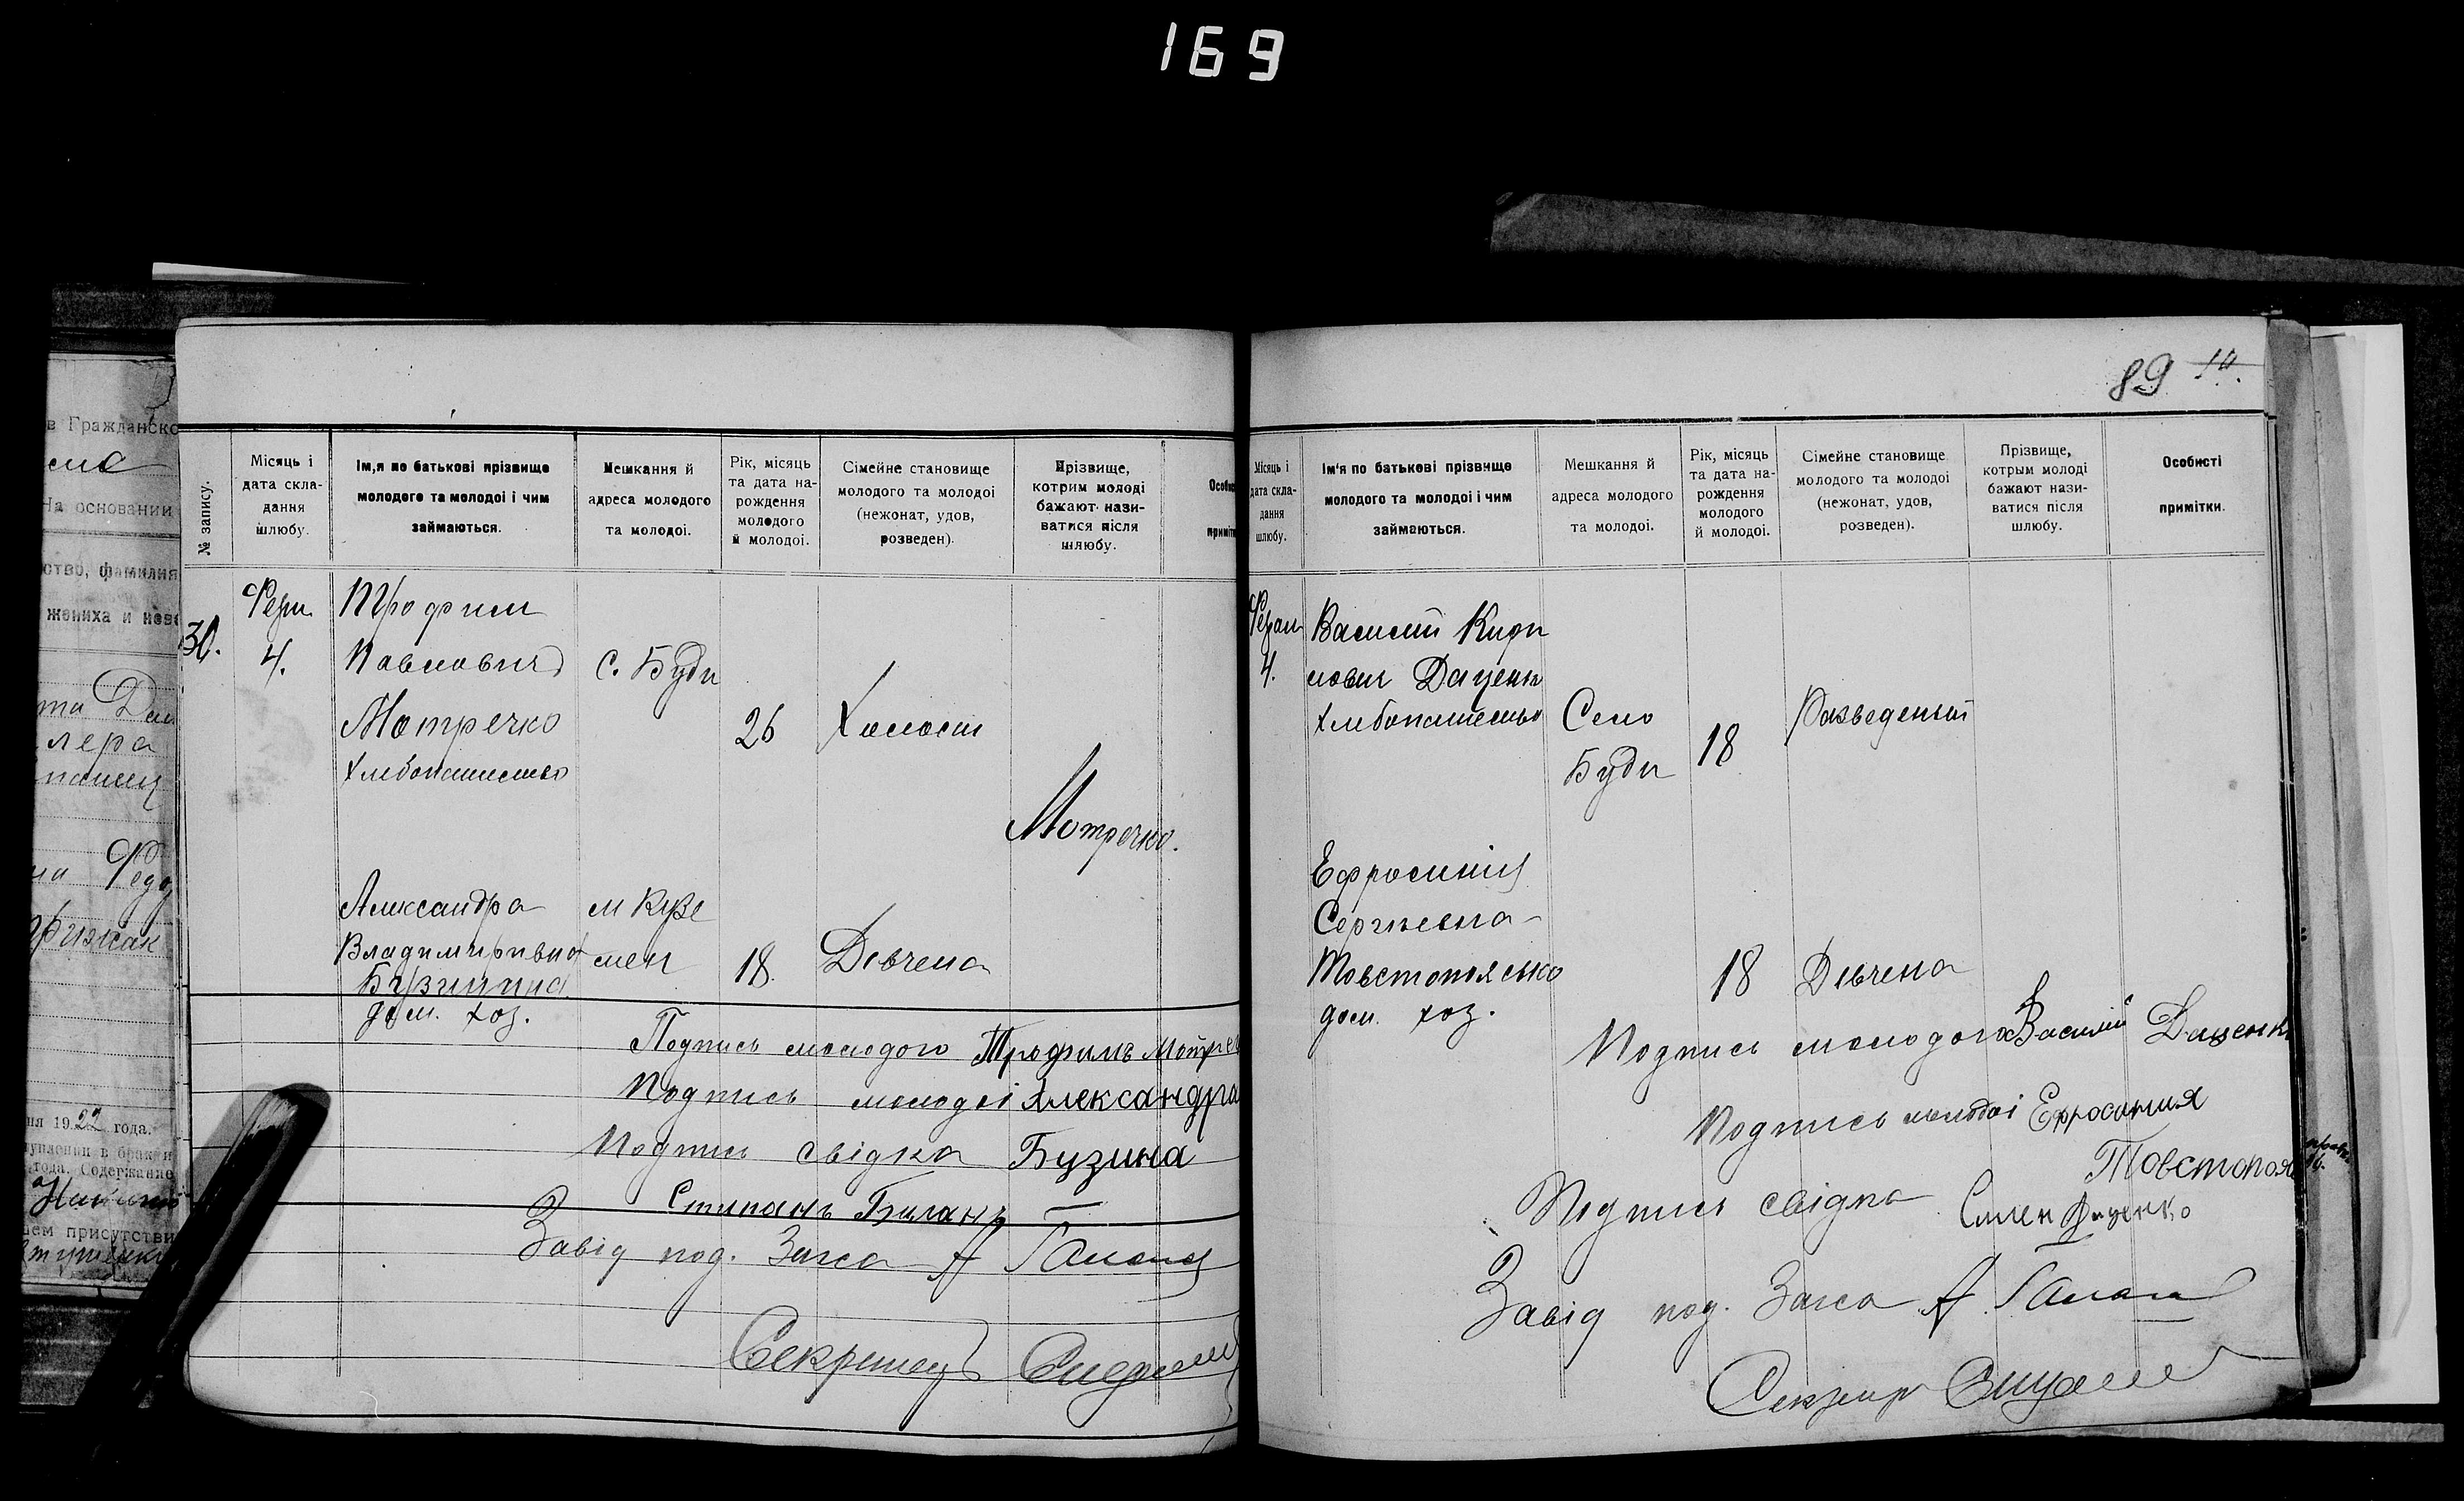 169
в Гражданско
На основании
ство, фамилия
жениха и неве
лера
Федо
ня 1922 года.
года. Содержание
ем присутстви
№ запису.
Місяць і дата скла- дання шлюбу.
Ім,я по батькові прізвище молодого та молодоі і чим займаються.
Мешкання й адреса молодого та молодоі.
Рік, місяць та дата на- рождення молодого й молодоі.
Сімейне становище молодого та молодоі (нежонат, удов, розведен).
Прізвище, котрим молоді бажают нази- ватися після шлюбу.
30.
4.
Трофим
Павлович
Мотречко
Хлибопашество
с. Буди
26
Холост
Мотречко.
Александра
Владимиривна
Бузинина
дом. хоз.
м Кузе
мен
18.
Дівчена
Подпись молодого Трофимъ Мотре
Подпись молодоі Александра
Подпись свідка Бузина
Степанъ Биланъ
Завід под. Загса А
Секретар
89
10.
Місяць і дата скла- дання шлюбу.
Ім'я по батькові прізвище молодого та молодоі і чим займаються.
Мешкання й адреса молодого та молодоі.
Рік, місяць та дата на- рождення молодого й молодоі.
Сімейне становище молодого та молодоі (нежонат, удов, розведен).
Прізвище, котрым молоді бажают нази- ватися після шлюбу.
Особисті примітки.
4.
Василий Кири
лович Даценк
Хлибопашество
Село
Буди
18
Разведеный
Ефросиния
Сергиевна
Товстопяско
дом. хоз.
18
Дівчена
Подпись молодого Василий Даценк
Подпись молодоі Ефросиния
Товстопоя
Подпись свідка Семен Даценко
Завід под. Загса А
Секретар